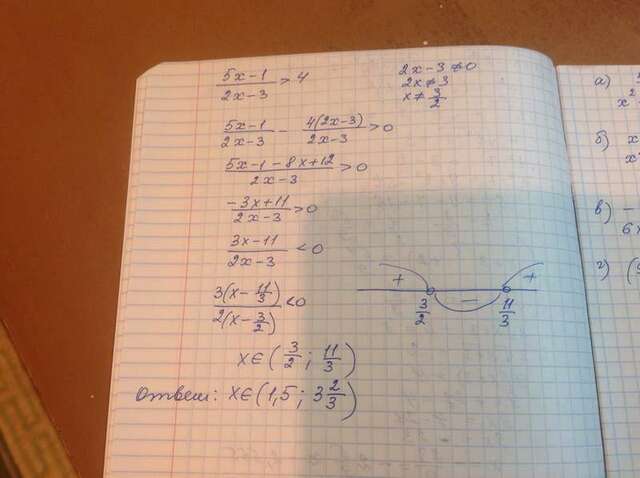 (5x-1)/(2x-3) > 4
2x-3≠0
2x≠3
x≠3/2
(5x-1)/(2x-3) - 4(2x-3)/(2x-3) > 0
(5x-1-8x+12)/(2x-3) > 0
(-3x+11)/(2x-3) > 0
(3x-11)/(2x-3) < 0
3(x-11/3)/2(x-3/2) < 0
+ - +
3/2 11/3
x∈(3/2; 11/3)
Ответ: x∈(1,5; 3 2/3)
а)
x²
б) x
в) -
6x
г) (